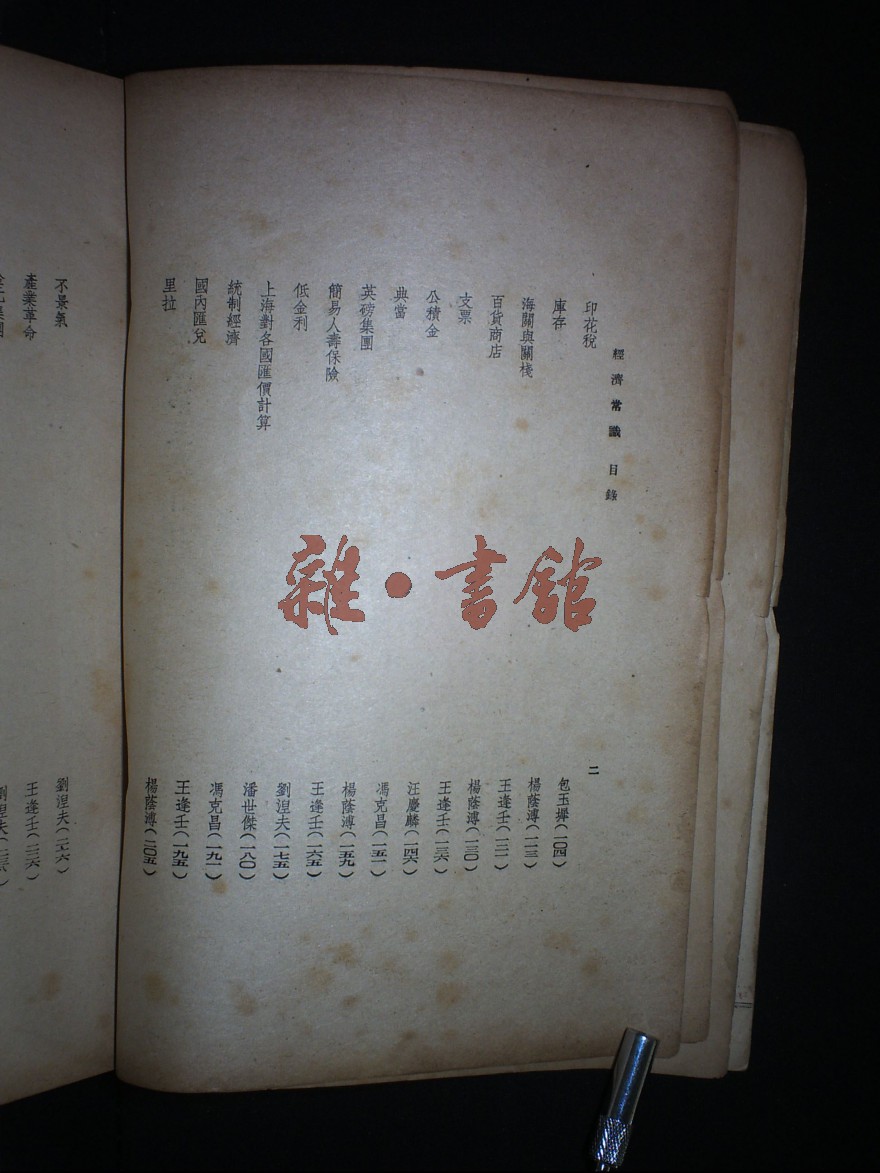 經濟常識 目錄 二
印花稅 包玉墀(一〇四)
庫存 楊蔭溥(一一三)
海關與關棧 王逢壬(一二一)
百貨商店 楊蔭溥(一三〇)
支票 王逢壬(一三六)
公積金 汪慶麟(一四六)
典當 馮克昌(一五一)
英磅集團 楊蔭溥(一五九)
簡易人壽保險 王逢壬(一六五)
低金利 劉涅夫(一七五)
上海對各國匯價計算 潘世傑(一八〇)
統制經濟 馮克昌(一九一)
國內匯兌 王逢壬(一九五)
里拉 楊蔭溥(二〇五)
不景氣 劉涅夫(二一六)
產業革命 王逢壬(二二六)
雜·書館